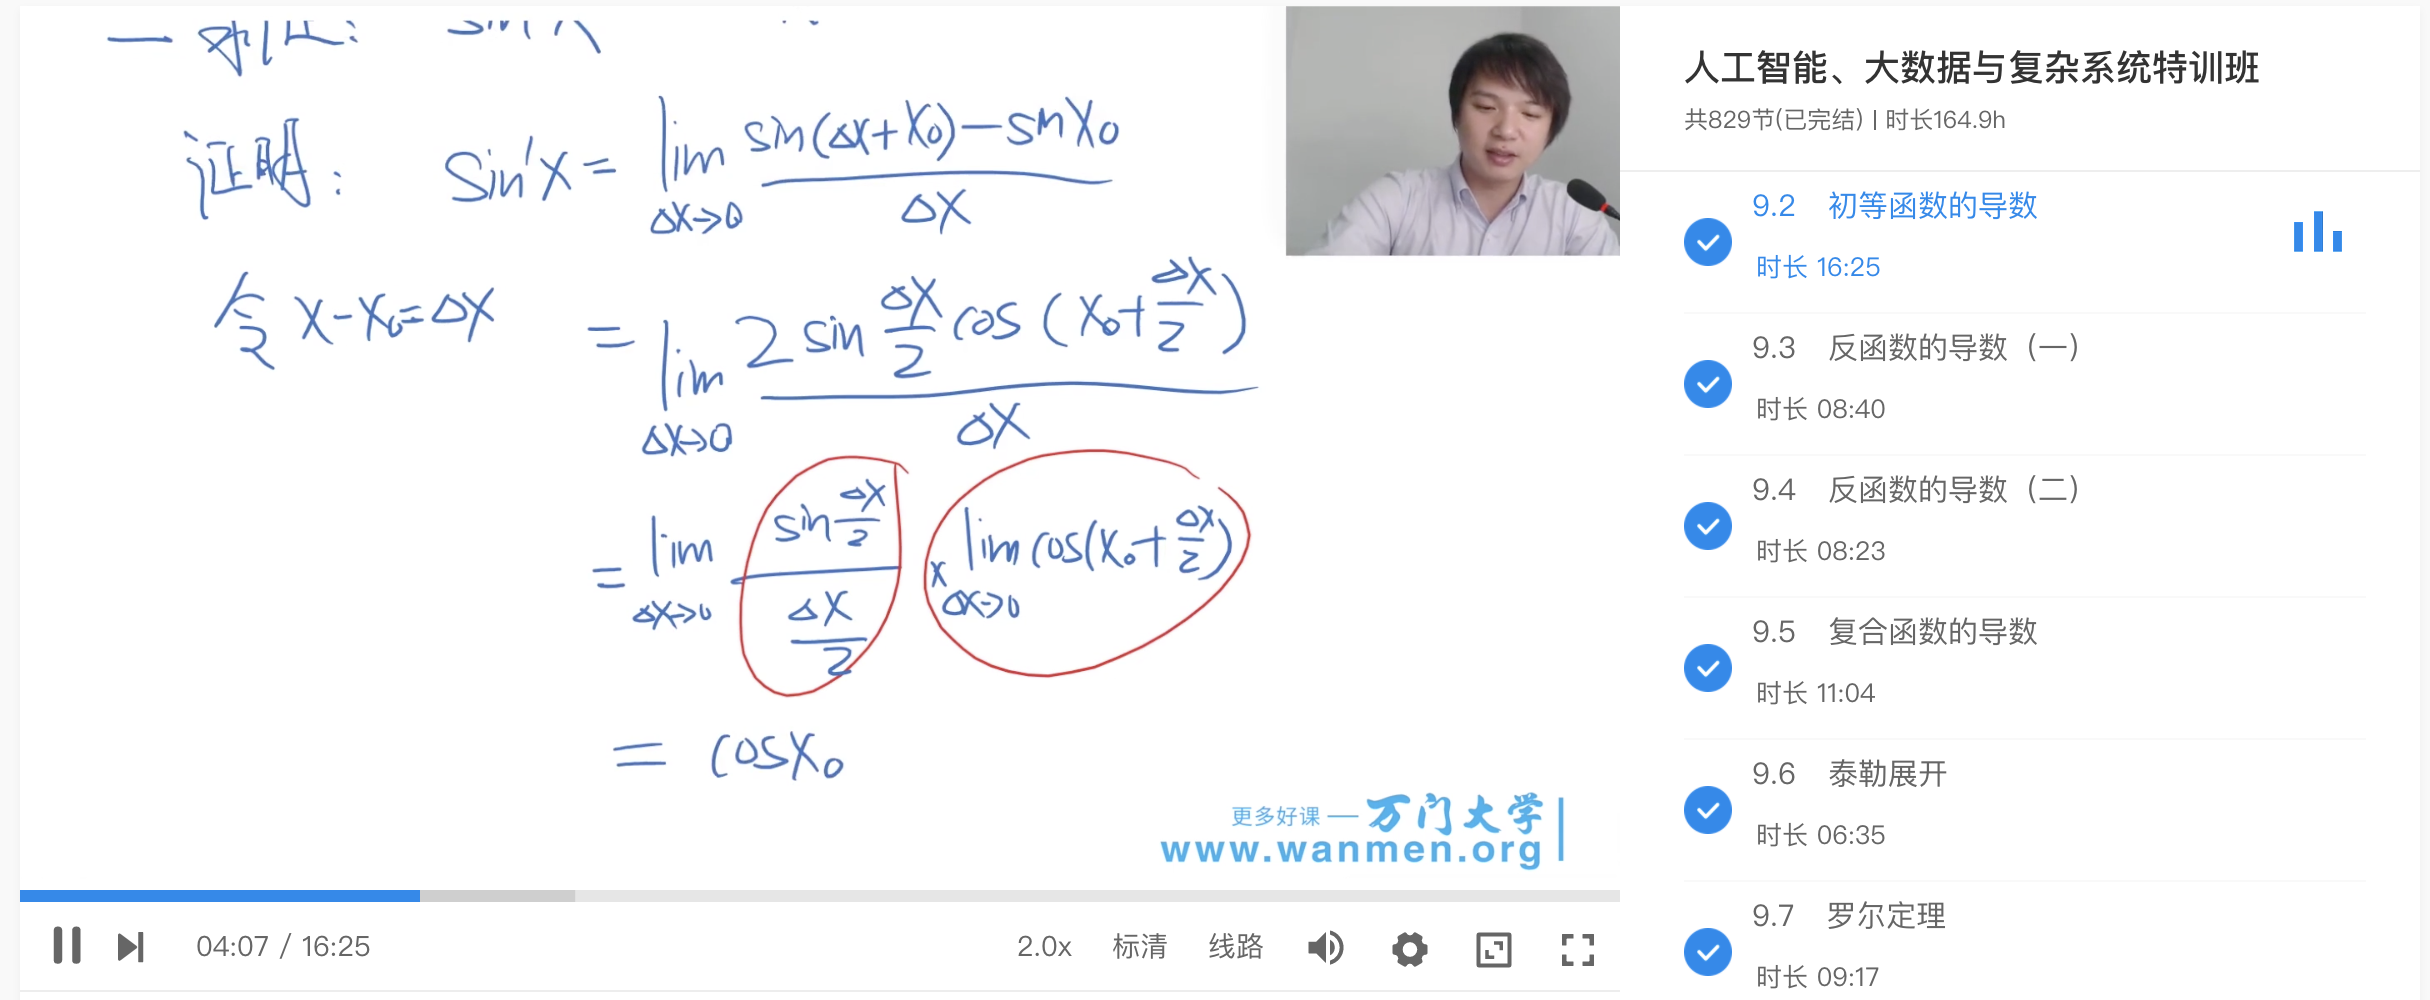 证明： sin'x = lim Δx→0 sin(Δx+x₀)－sinx₀ / Δx
令 x－x₀=Δx = lim Δx→0 2 sin Δx/2 cos (x₀+Δx/2) / Δx
= lim Δx→0 sin Δx/2 / Δx/2 × lim Δx→0 cos(x₀+Δx/2)
= cosx₀
更多好课 — 万门大学
www.wanmen.org
04:07 / 16:25 2.0x 标清 线路
人工智能、大数据与复杂系统特训班
共829节(已完结) | 时长164.9h
9.2 初等函数的导数
时长 16:25
9.3 反函数的导数（一）
时长 08:40
9.4 反函数的导数（二）
时长 08:23
9.5 复合函数的导数
时长 11:04
9.6 泰勒展开
时长 06:35
9.7 罗尔定理
时长 09:17